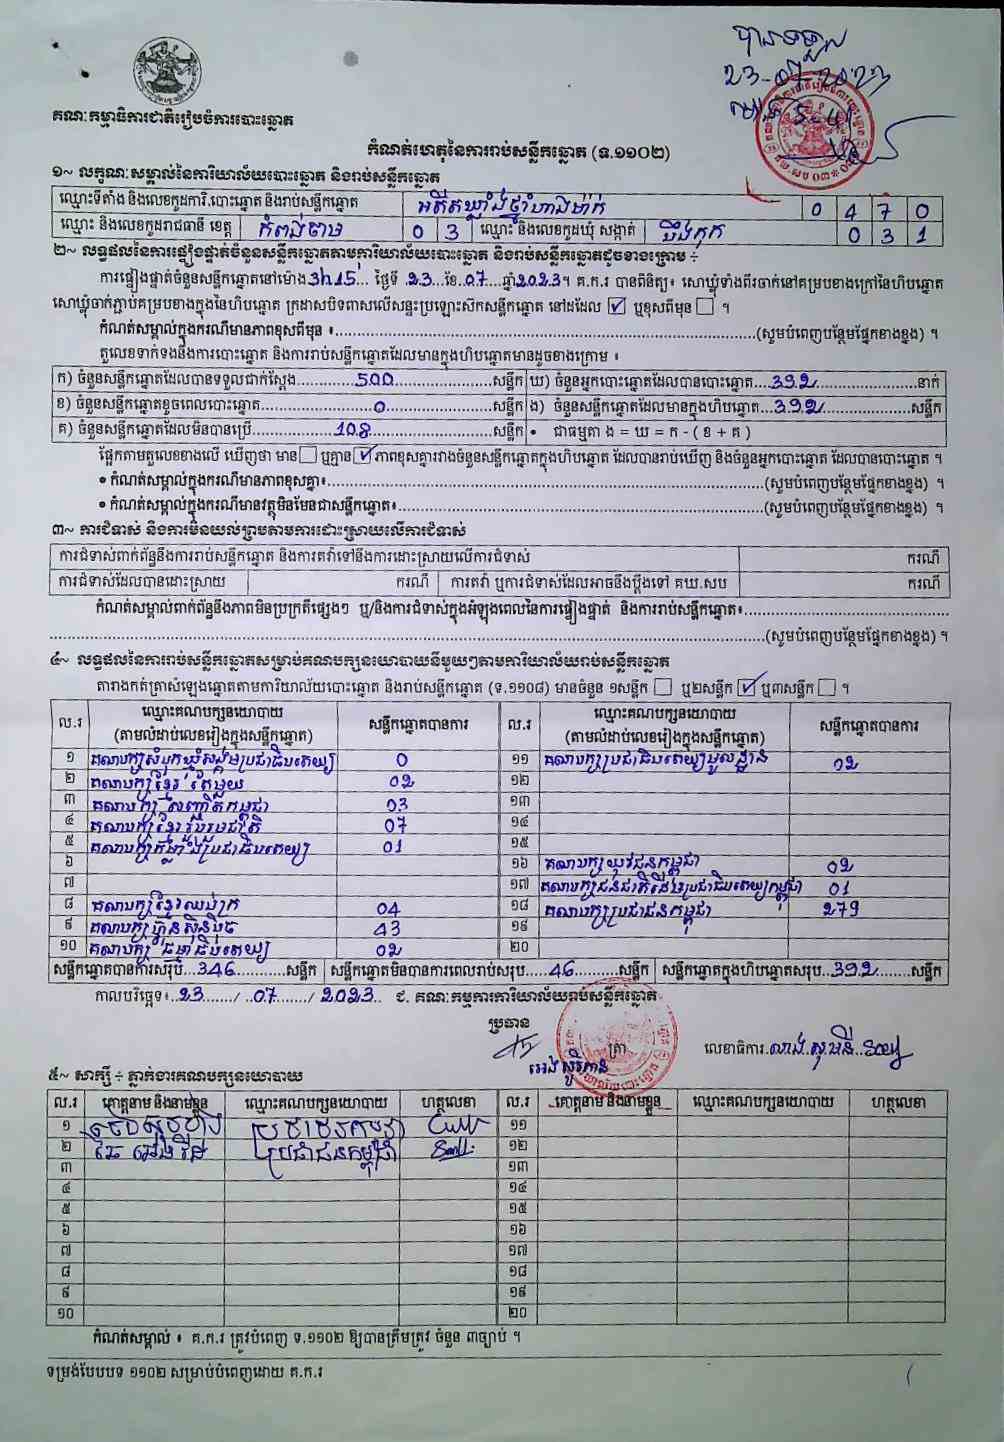 បានទទួល
23-07-2023
ម៉ោង 5:41
គណៈកម្មាធិការជាតិរៀបចំការបោះឆ្នោត
កំណត់ហេតុនៃការរាប់សន្លឹកឆ្នោត (ទ.១១០២)
១~ លក្ខណៈសម្គាល់នៃការិយាល័យបោះឆ្នោត និងរាប់សន្លឹកឆ្នោត
ឈ្មោះទីតាំង និងលេខកូដការិ.បោះឆ្នោត និងរាប់សន្លឹកឆ្នោត 0 4 7 0
ឈ្មោះ និងលេខកូដរាជធានី ខេត្ត កំពង់ចាម 0 3 ឈ្មោះ និងលេខកូដឃុំ សង្កាត់ បឹងកុក 0 3 1
២~ លទ្ធផលនៃការផ្ទៀងផ្ទាត់ចំនួនសន្លឹកឆ្នោតតាមការិយាល័យបោះឆ្នោត និងរាប់សន្លឹកឆ្នោតដូចខាងក្រោម ÷
ការផ្ទៀងផ្ទាត់ចំនួនសន្លឹកឆ្នោតនៅម៉ោង 3h15 ថ្ងៃទី 23 ខែ 07 ឆ្នាំ 2023។ គ.ក.រ បានពិនិត្យ៖ សោឃ្លុំទាំងពីរចាក់នៅគម្របខាងក្រៅនៃហិបឆ្នោត
សោឃ្លុំចាក់ភ្ជាប់គម្របខាងក្នុងនៃហិបឆ្នោត ក្រដាសបិទពាសលើសន្ទះប្រឡោះស៊កសន្លឹកឆ្នោត នៅដដែល ☑ ឬខុសពីមុន ☐ ។
កំណត់សម្គាល់ក្នុងករណីមានភាពខុសពីមុន ៖ (សូមបំពេញបន្ថែមផ្នែកខាងខ្នង) ។
តួលេខទាក់ទងនឹងការបោះឆ្នោត និងការរាប់សន្លឹកឆ្នោតដែលមានក្នុងហិបឆ្នោតមានដូចខាងក្រោម ៖
ក) ចំនួនសន្លឹកឆ្នោតដែលបានទទួលជាក់ស្តែង 500 សន្លឹក ឃ) ចំនួនអ្នកបោះឆ្នោតដែលបានបោះឆ្នោត 392 នាក់
ខ) ចំនួនសន្លឹកឆ្នោតខូចពេលបោះឆ្នោត 0 សន្លឹក ង) ចំនួនសន្លឹកឆ្នោតដែលមានក្នុងហិបឆ្នោត 392 សន្លឹក
គ) ចំនួនសន្លឹកឆ្នោតដែលមិនបានប្រើ 108 សន្លឹក • ជាធម្មតា ង = ឃ = ក - ( ខ + គ )
ផ្អែកតាមតួលេខខាងលើ ឃើញថា មាន ☐ ឬគ្មាន ☑ ភាពខុសគ្នារវាងចំនួនសន្លឹកឆ្នោតក្នុងហិបឆ្នោត ដែលបានរាប់ឃើញ និងចំនួនអ្នកបោះឆ្នោត ដែលបានបោះឆ្នោត ។
• កំណត់សម្គាល់ក្នុងករណីមានភាពខុសគ្នា៖ (សូមបំពេញបន្ថែមផ្នែកខាងខ្នង) ។
• កំណត់សម្គាល់ក្នុងករណីមានវត្ថុមិនមែនជាសន្លឹកឆ្នោត៖ (សូមបំពេញបន្ថែមផ្នែកខាងខ្នង) ។
៣~ ការជំទាស់ និងការមិនយល់ព្រមតាមការដោះស្រាយលើការជំទាស់
ការជំទាស់ពាក់ព័ន្ធនឹងការរាប់សន្លឹកឆ្នោត និងការតវ៉ាទៅនឹងការដោះស្រាយលើការជំទាស់ ករណី
ការជំទាស់ដែលបានដោះស្រាយ ករណី ការតវ៉ា ឬការជំទាស់ដែលអាចនឹងប្តឹងទៅ គឃ.សប ករណី
កំណត់សម្គាល់ពាក់ព័ន្ធនឹងភាពមិនប្រក្រតីផ្សេងៗ ឬ/និងការជំទាស់ក្នុងអំឡុងពេលនៃការផ្ទៀងផ្ទាត់ និងការរាប់សន្លឹកឆ្នោត៖
(សូមបំពេញបន្ថែមផ្នែកខាងខ្នង) ។
៤~ លទ្ធផលនៃការរាប់សន្លឹកឆ្នោតសម្រាប់គណបក្សនយោបាយនីមួយៗតាមការិយាល័យរាប់សន្លឹកឆ្នោត
តារាងកត់ត្រាសំឡេងឆ្នោតតាមការិយាល័យបោះឆ្នោត និងរាប់សន្លឹកឆ្នោត (ទ.១១០៨) មានចំនួន ១សន្លឹក ☐ ឬ២សន្លឹក ☑ ឬ៣សន្លឹក ☐ ។
ល.រ ឈ្មោះគណបក្សនយោបាយ (តាមលំដាប់លេខរៀងក្នុងសន្លឹកឆ្នោត) សន្លឹកឆ្នោតបានការ ល.រ ឈ្មោះគណបក្សនយោបាយ (តាមលំដាប់លេខរៀងក្នុងសន្លឹកឆ្នោត) សន្លឹកឆ្នោតបានការ
១ គណបក្សសំបុកឃ្មុំសង្គមប្រជាធិបតេយ្យ 0 ១១ គណបក្សប្រជាធិបតេយ្យមូលដ្ឋាន 02
២ គណបក្សខ្មែរតែមួយ 02 ១២
៣ គណបក្សសញ្ជាតិកម្ពុជា 03 ១៣
៤ គណបក្សខ្មែររួបរួមជាតិ 07 ១៤
៥ គណបក្សកម្លាំងប្រជាធិបតេយ្យ 01 ១៥
៦ ១៦ គណបក្សយុវជនកម្ពុជា 02
៧ ១៧ គណបក្សជនជាតិដើមប្រជាធិបតេយ្យកម្ពុជា 01
៨ គណបក្សខ្មែរឈប់ក្រ 04 ១៨ គណបក្សប្រជាជនកម្ពុជា 279
៩ គណបក្សហ្វ៊ុនស៊ិនប៉ិច 43 ១៩
១០ គណបក្សធម្មាធិបតេយ្យ 02 ២០
សន្លឹកឆ្នោតបានការសរុប 346 សន្លឹក សន្លឹកឆ្នោតមិនបានការពេលរាប់សរុប 46 សន្លឹក សន្លឹកឆ្នោតក្នុងហិបឆ្នោតសរុប 392 សន្លឹក
កាលបរិច្ឆេទ៖ 23 / 07 / 2023 ជ. គណៈកម្មការការិយាល័យរាប់សន្លឹកឆ្នោត
ប្រធាន
ត្រា លេខាធិការ
៥~ សាក្សី ÷ ភ្នាក់ងារគណបក្សនយោបាយ
ល.រ គោត្តនាម និងនាមខ្លួន ឈ្មោះគណបក្សនយោបាយ ហត្ថលេខា ល.រ គោត្តនាម និងនាមខ្លួន ឈ្មោះគណបក្សនយោបាយ ហត្ថលេខា
១ ប្រជាជនកម្ពុជា ១១
២ ប្រជាជនកម្ពុជា ១២
៣ ១៣
៤ ១៤
៥ ១៥
៦ ១៦
៧ ១៧
៨ ១៨
៩ ១៩
១០ ២០
កំណត់សម្គាល់ ៖ គ.ក.រ ត្រូវបំពេញ ទ.១១០២ ឱ្យបានត្រឹមត្រូវ ចំនួន ៣ច្បាប់ ។
ទម្រង់បែបបទ ១១០២ សម្រាប់បំពេញដោយ គ.ក.រ